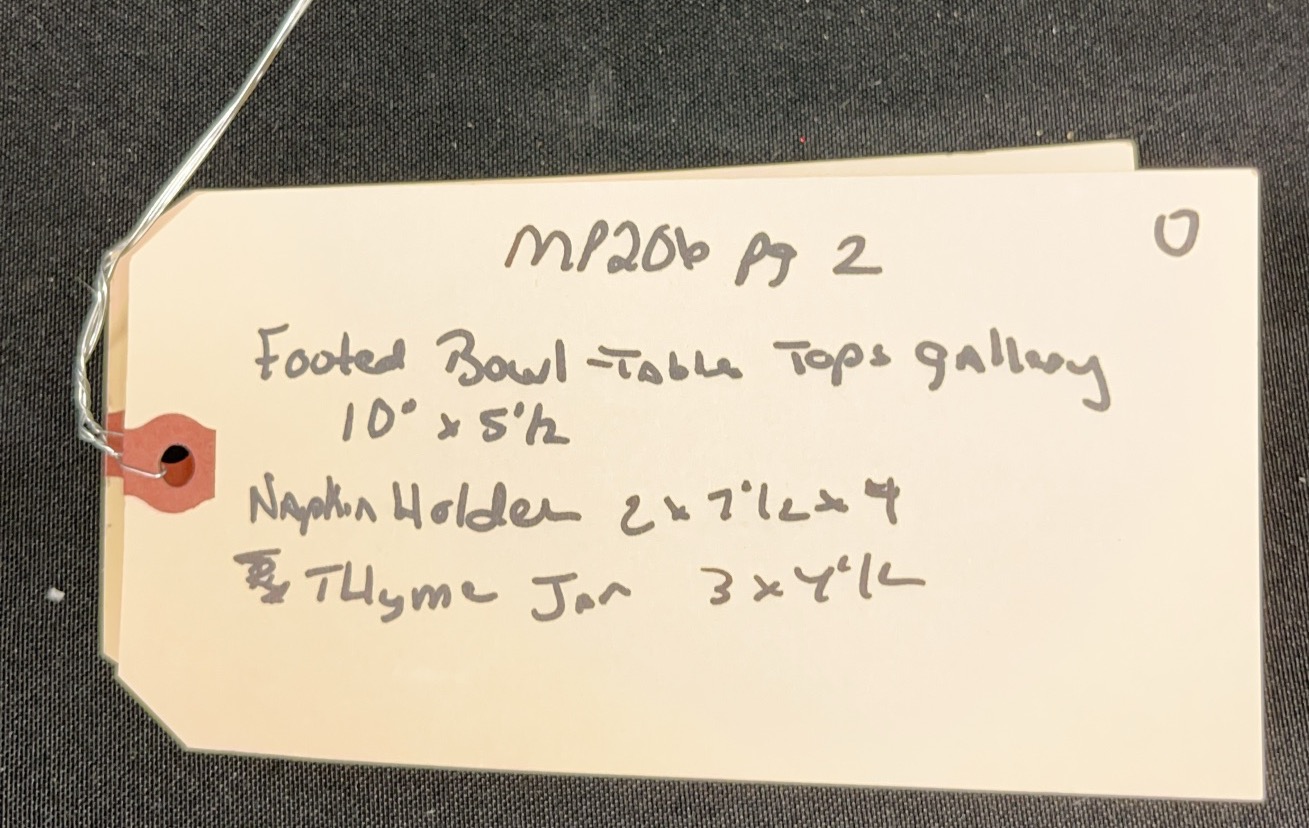 MP206 pg 2 O
Footed Bowl - Table Tops gallery
10" x 5 1/2
Napkin Holder 2 x 7 1/2 x 4
THyme Jar 3 x 4 1/2